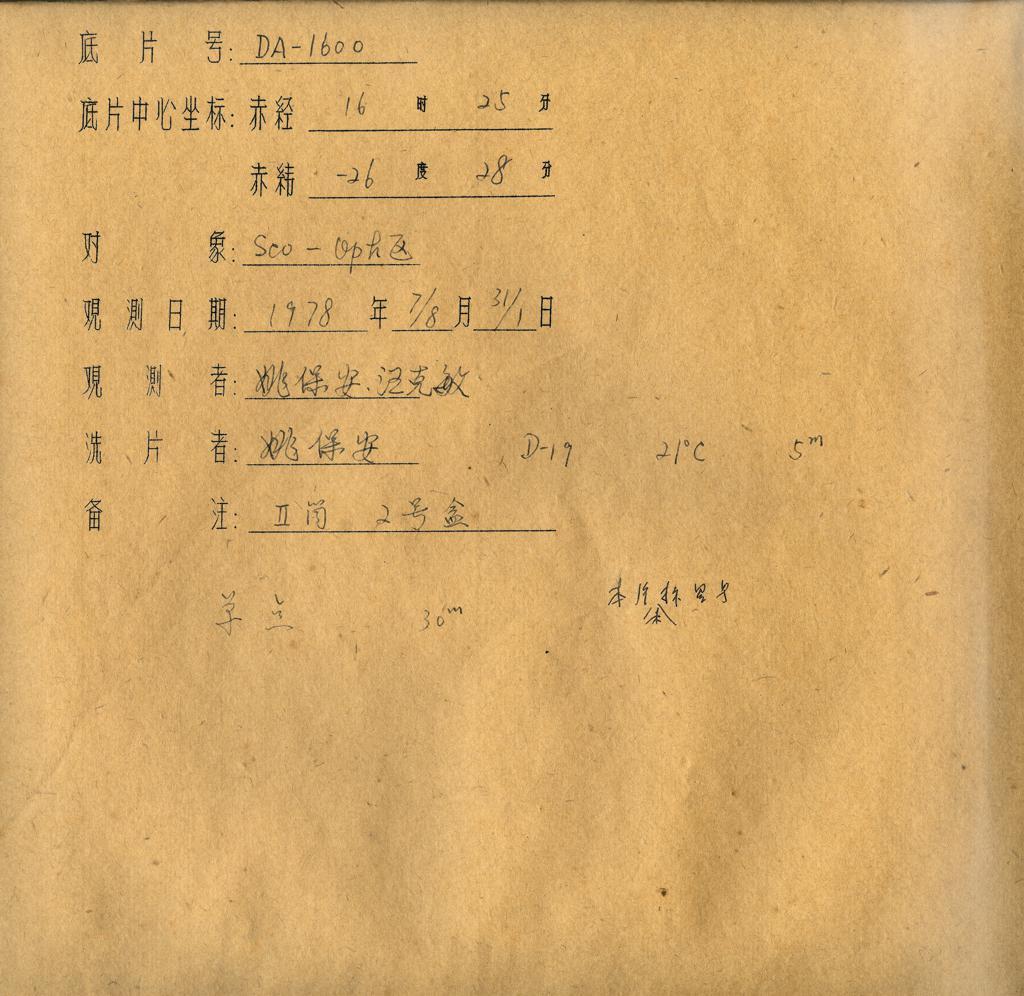 底片号: DA-1600
底片中心坐标: 赤经 16 时 25 分
赤纬 -26 度 28 分
对象: Sco - Oph区
观测日期: 1978 年 7/8 月 31/1 日
观测者: 姚保安、汪克敏
洗片者: 姚保安 D-19 21°C 5m
备注: II岗 2号盒
单点 30m
本片未标星号